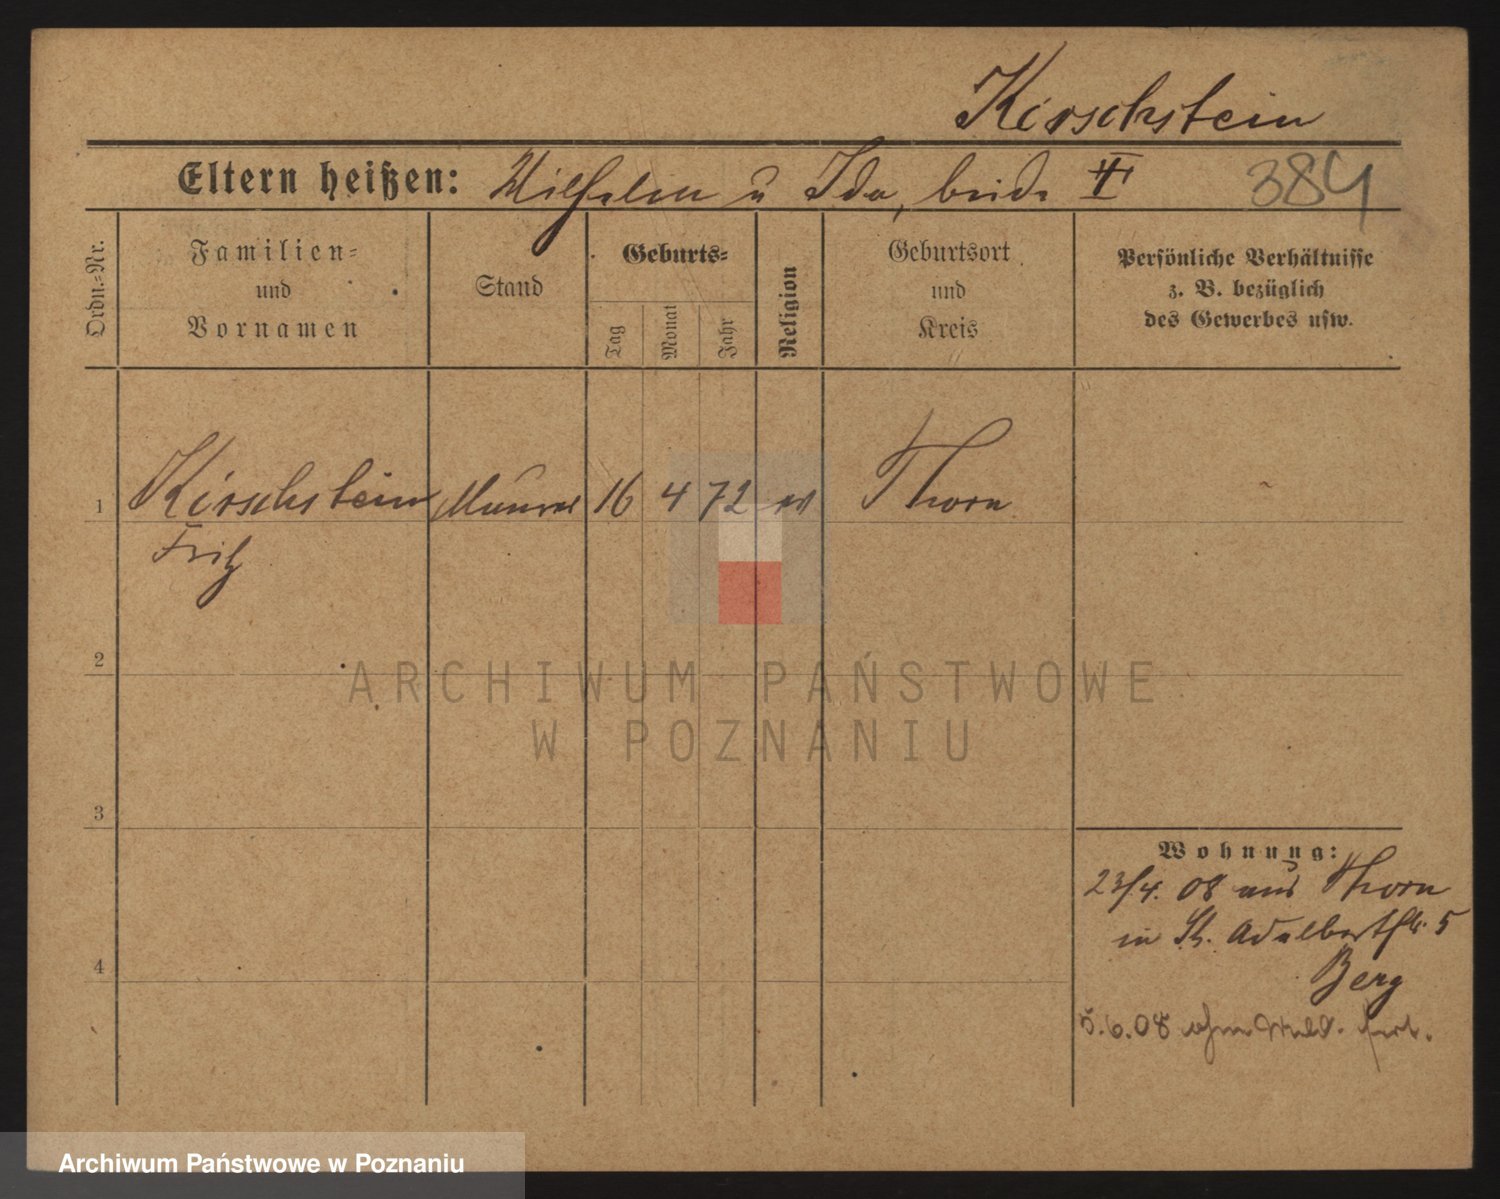 Kirschstein
Eltern heißen: Wilhelm u Ida, beide ‡
384
Ordn.-Nr.
Familien-
und
Vornamen
Stand
Geburts-
Tag
Monat
Jahr
Religion
Geburtsort
und
Kreis
Persönliche Verhältnisse
z. B. bezüglich
des Gewerbes usw.
1 Kirschstein Maurer 16 4 72 ev Thorn
Fritz
2
3
4
Wohnung:
23/4. 08 aus Thorn
in St. Adalbertstr. 5
Berg
5.6.08 ohne Meld. fort.
ARCHIWUM PAŃSTWOWE
W POZNANIU
Archiwum Państwowe w Poznaniu